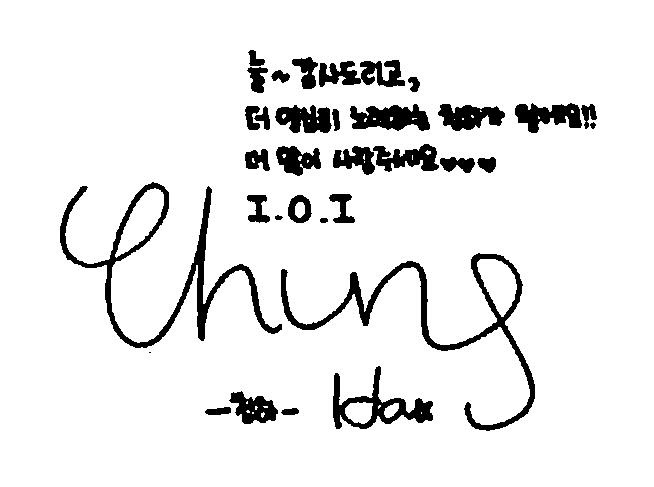 늘~ 감사드리고,
더 열심히 노력하는 청하가 될게요!!
더 많이 사랑해주세요♥♥♥
I.O.I
Chung
-청하- Ha